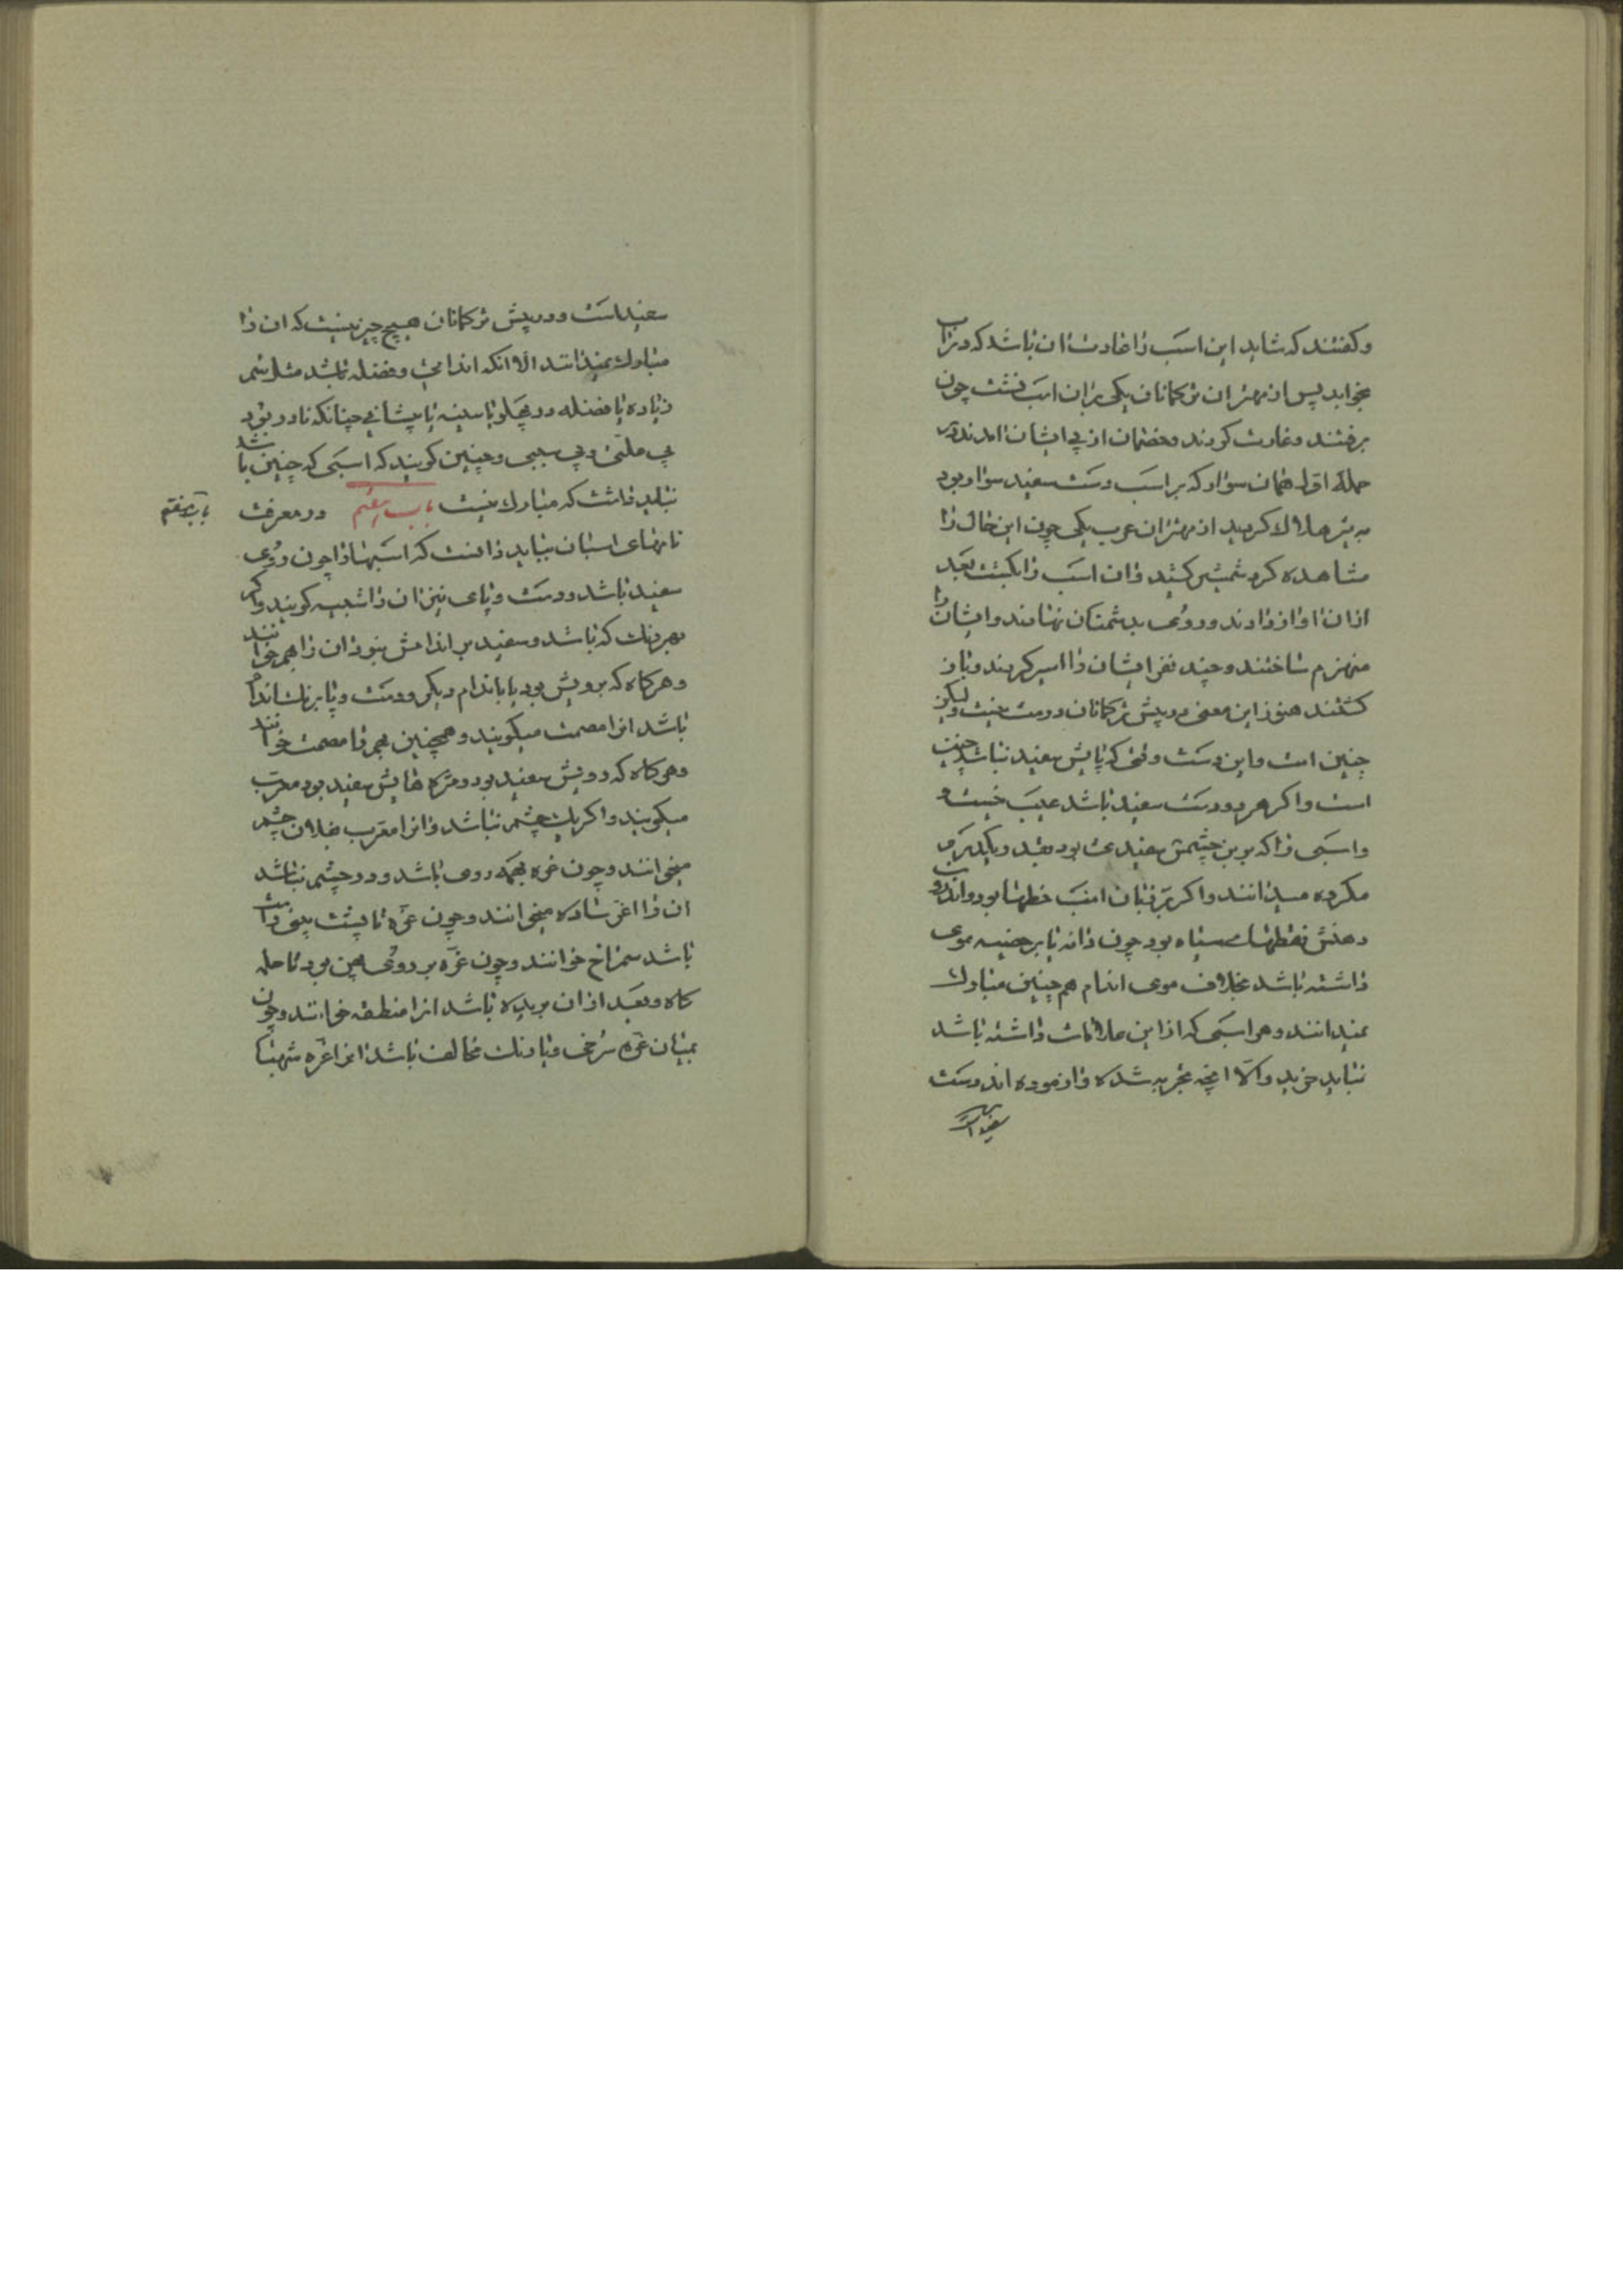 و کفتند که شاید این اسب را عادت ان باشد که در اب
بخوابد پس از مهتران ترکمانان یکی بران اسب نشست چون
برفتند و غارت کردند و خصمان از پی ایشان امدند در
حمله اول همان سوار که بر اسب دست سفید سوار بود
به تیر هلاک کردید از مهتران عرب یکی چون این حال را
مشاهده کرد شمشیر کشید و ان اسب را بکشت بعد
ازان اواز دادند و روی بدشمنان نهادند و ایشان را
منهزم ساختند و چند نفر ایشان را اسیر کردند و باز
کشتند هنوز این معنی در پیش ترکمانان درست نیست و لیکن
چنین است و این دست وقتی که پایش سفید نباشد چنین
است و اکر هر دو دست سفید باشد عیب نیست و
واسبی را که برین چشمش سفیدی بود
مکروه میدانند و اکر بر زبان اسب خطها بود و اندرون
دهنش نقطهای سیاه بود چون دانه یا بر خصیه موی
داشته باشد بخلاف موی اندام هم چنین مبارک
نمیدانند و هر اسبی که از این علامات داشته باشد
نباید خرید والا انچه تجربه شده و ازموده اند دست
سفید است
سفید است و در پیش ترکمانان هیچ چیز نیست که ان را
مبارک نمیدانند الا انکه اندامی و فضله باشد مثل سم
زیاده یا فضله در پهلو یا سینه یا پیشانی چنانکه نادر بود
بی علتی و بی سببی و چنین کویند که اسبی که چنین باشد
نباید داشت که مبارک نیست باب هفتم در معرفت
باب هفتم
نامهای اسبان بباید دانست که اسبها را چون روی
سفید باشد و دست و پای نیز ان را شعیب کویند و اکر
بهر رنک که باشد و سفید بر اندامش نبود ان را بهیم خوانند
و هرکاه که برویش بود یا باندام دیکر و دست و پا برنک اندام
باشد انرا مصمت میکویند و همچنین بهیم را مصمت خوانند
و هرکاه که رویش سفید بود و مژه هایش سفید بود مغرب
میکویند و اکر یک چشم باشد و انرا مغرب فلان چشم
میخوانند و چون غره بهمه روی باشد و در چشم نباشد
ان را اغر شادخ میخوانند و چون غره تا پشت بینی راست
باشد شمراخ خوانند و چون غره بر روی بود تا
کاه و بعد ازان بریده باشد انرا منطقه خوانند و چون
بمیان غره سرخی و یا رنک مخالف باشد انرا غره شهبا